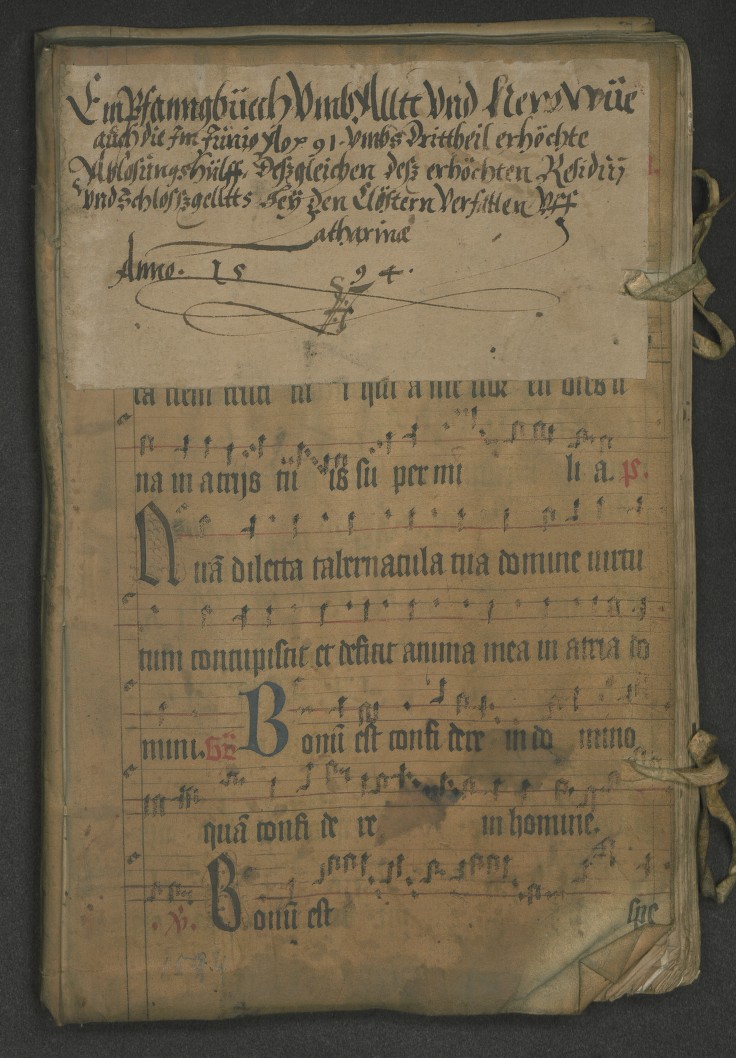 Empfanngbüech Vmb Alltt Vnd Neww wüe
auch die Im Junio Ao 91 Vmbs Drittheil erhöchte
Ablosungshülff, Deßgleichen deß erhöchten Residuj
Vnd Schlosßgelltts Bey den Clöstern Verfallen Vff
Catharinæ
Anno. 15 94.
na in atrijs tu is su per mi li a. ps.
Quā dilecta tabernacula tua domine uirtu
tum concupiscit et deficit anima mea in atria do
mini. Gr̄ Bonū est confi dere in do mino
quā confi de re in homine.
V. Bonū est spe